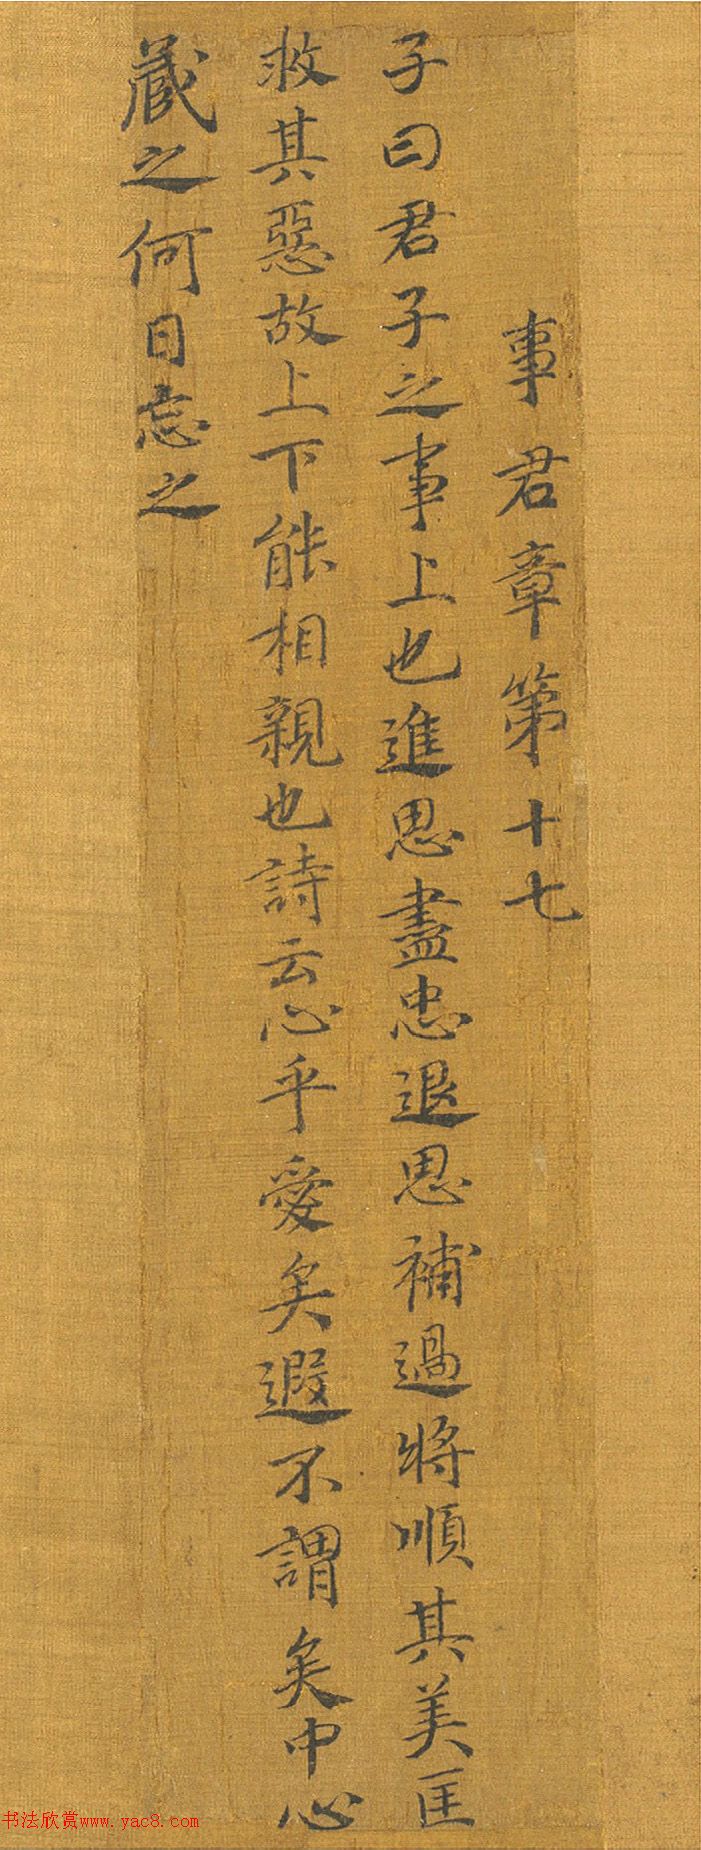 事君章第十七
子曰君子之事上也進思盡忠退思補過將順其美匡
救其惡故上下能相親也詩云心乎愛矣遐不謂矣中心
蔵之何日忘之
书法欣赏www.yac8.com